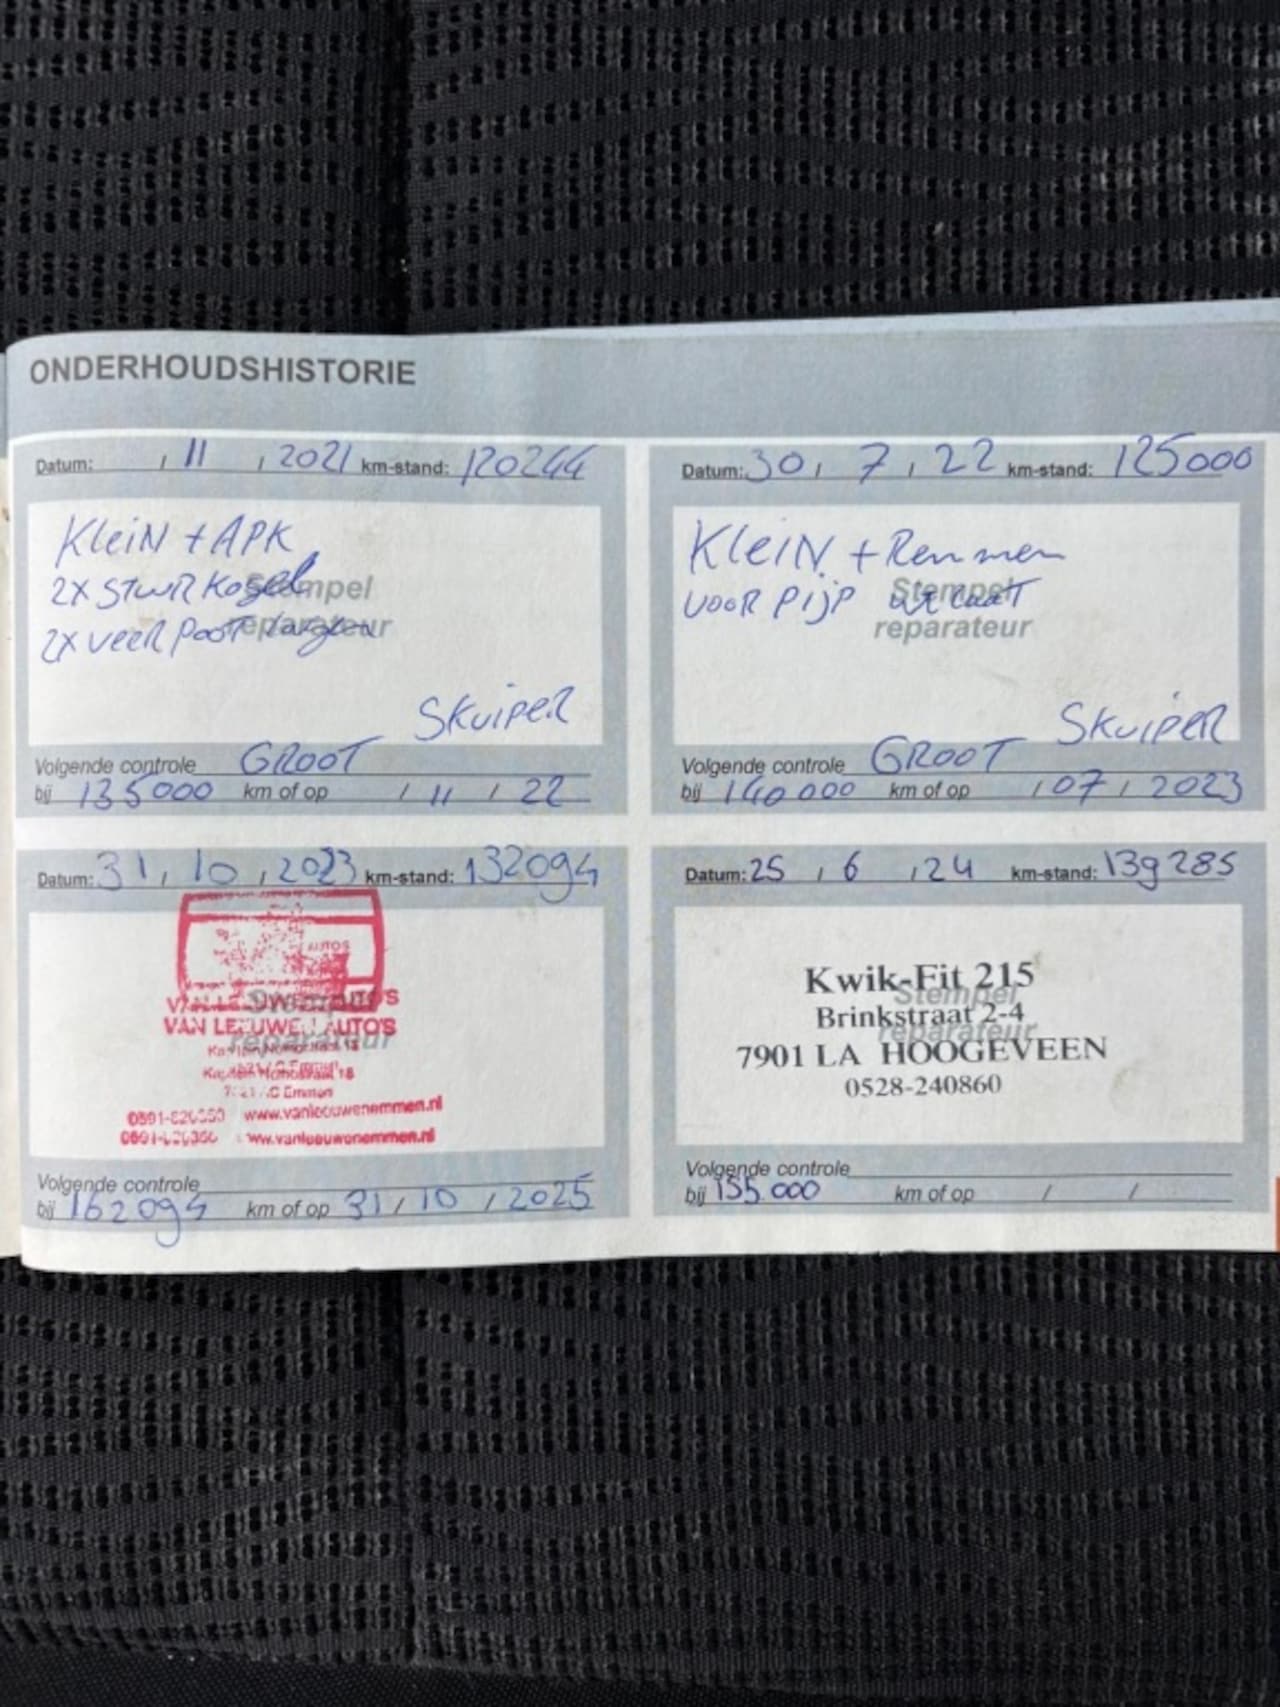 ONDERHOUDSHISTORIE
Datum: / 11 / 2021 km-stand: 120244
KleiN + APK
2x STUUR Kogel
2x veeR POOT
Stempel
reparateur
SKuipeR
Volgende controle GROOT
bij 135000 km of op / 11 / 22
Datum: 30 / 7 / 22 km-stand: 125000
KleiN + Remmen
VOOR PijP uitlaat
Stempel
reparateur
SKuipeR
Volgende controle GROOT
bij 140 000 km of op / 07 / 2023
Datum: 31 / 10 / 2023 km-stand: 132094
AUTOS
VAN LEEUWEN AUTO'S
VAN LEEUWEN AUTO'S
Stempel
reparateur
Emmen
www.vanleeuwenemmen.nl
www.vanleeuwenemmen.nl
Volgende controle
bij 162094 km of op 31 / 10 / 2025
Datum: 25 / 6 / 24 km-stand: 139285
Kwik-Fit 215
Stempel
Brinkstraat 2-4
reparateur
7901 LA HOOGEVEEN
0528-240860
Volgende controle
bij 155.000 km of op / /